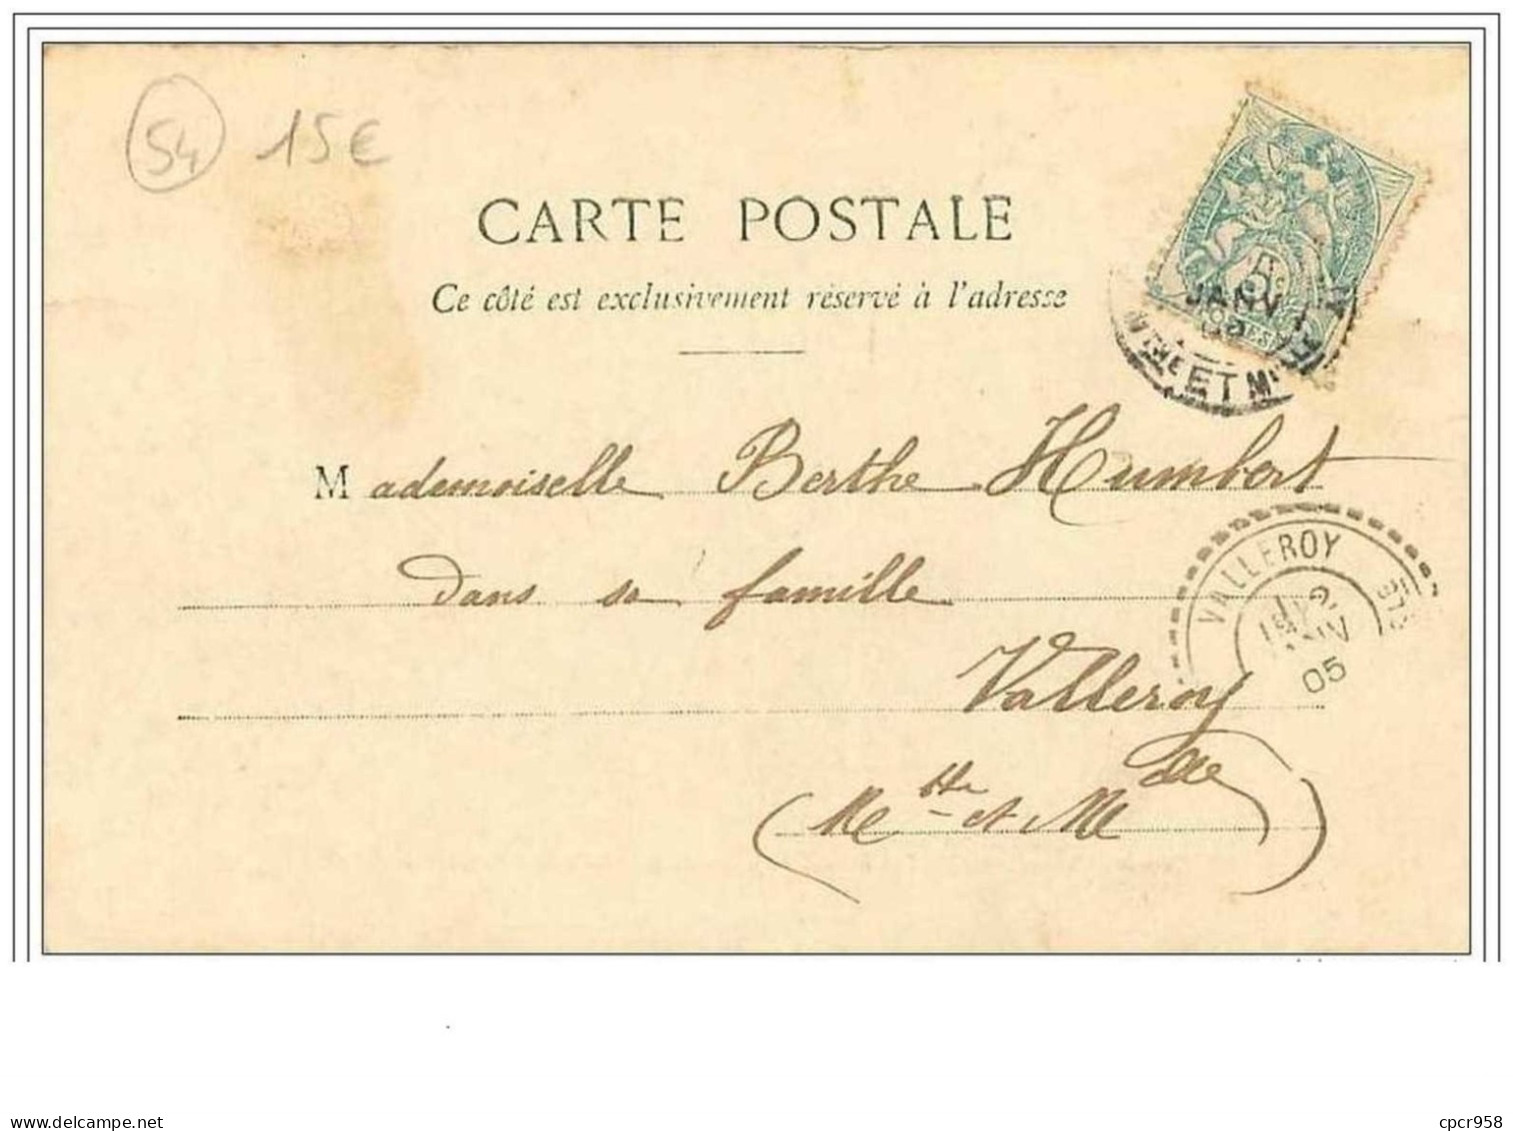 54 15€
CARTE POSTALE
Ce côté est exclusivement réservé à l'adresse
JANV
05
ET
Mademoiselle Berthe Humbert
dans sa famille
VALLEROY
12
JANV
05
Valleroy
(Mthe et Mlle)
cpcr958